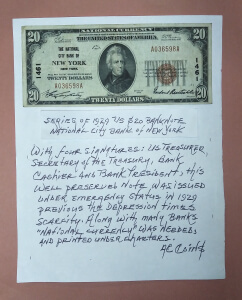 NATIONAL CURRENCY
20
20
THE NATIONAL
CITY BANK OF
NEW YORK
NEW YORK
TWENTY DOLLARS
A036598A
1461
1461
TWENTY DOLLARS
SERIES OF 1929 US $20 BANKNOTE
NATIONAL CITY BANK OF NEW YORK
WITH FOUR SIGNATURES: US TREASURER,
SECRETARY OF THE TREASURY, BANK
CASHIER AND BANK PRESIDENT, THIS
WELL PRESERVED NOTE WAS ISSUED
UNDER EMERGENCY STATUS IN 1929
PREVIOUS THE DEPRESSION TIMES
SCARSITY. ALONG WITH MANY BANKS
"NATIONAL CURRENCY" WAS NEEDED,
AND PRINTED UNDER CHARTERS.